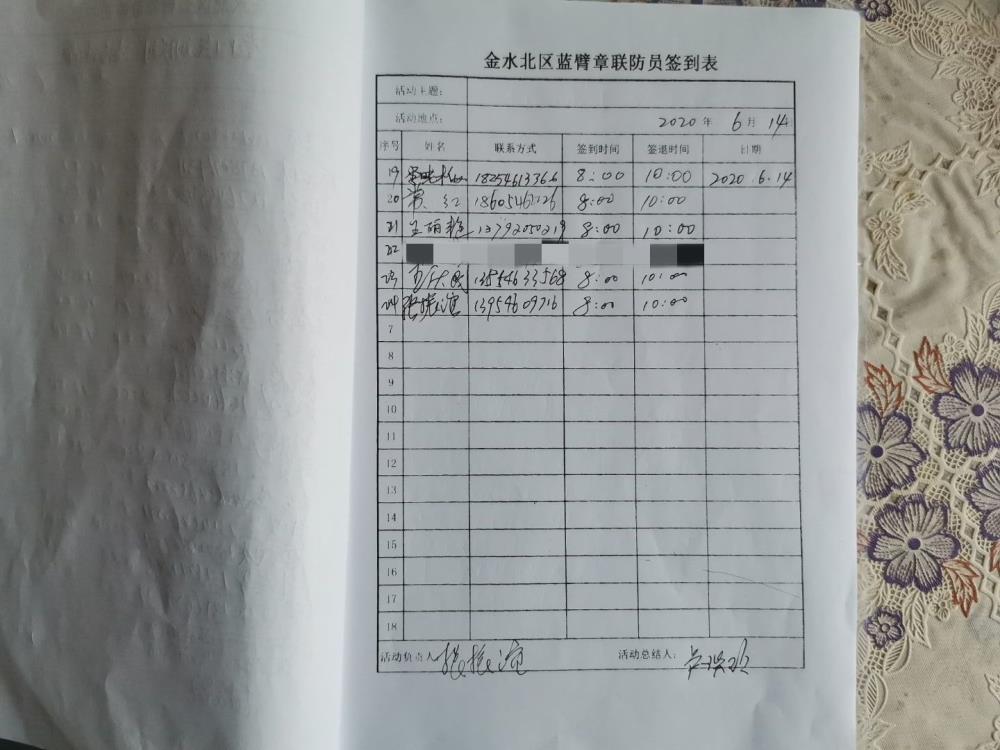 金水北区蓝臂章联防员签到表
活动主题：
活动地点： 2020 年 6 月 14
序号 姓名 联系方式 签到时间 签退时间 日期
19 18254613366 8:00 10:00 2020.6.14
20 常红 8:00 10:00
21 王丽艳 8:00 10:00
22
23 13554633568 8:00 10:00
24 张振滨 13954609716 8:00 10:00
7
8
9
10
11
12
13
14
15
16
17
18
活动负责人 张振滨 活动总结人：